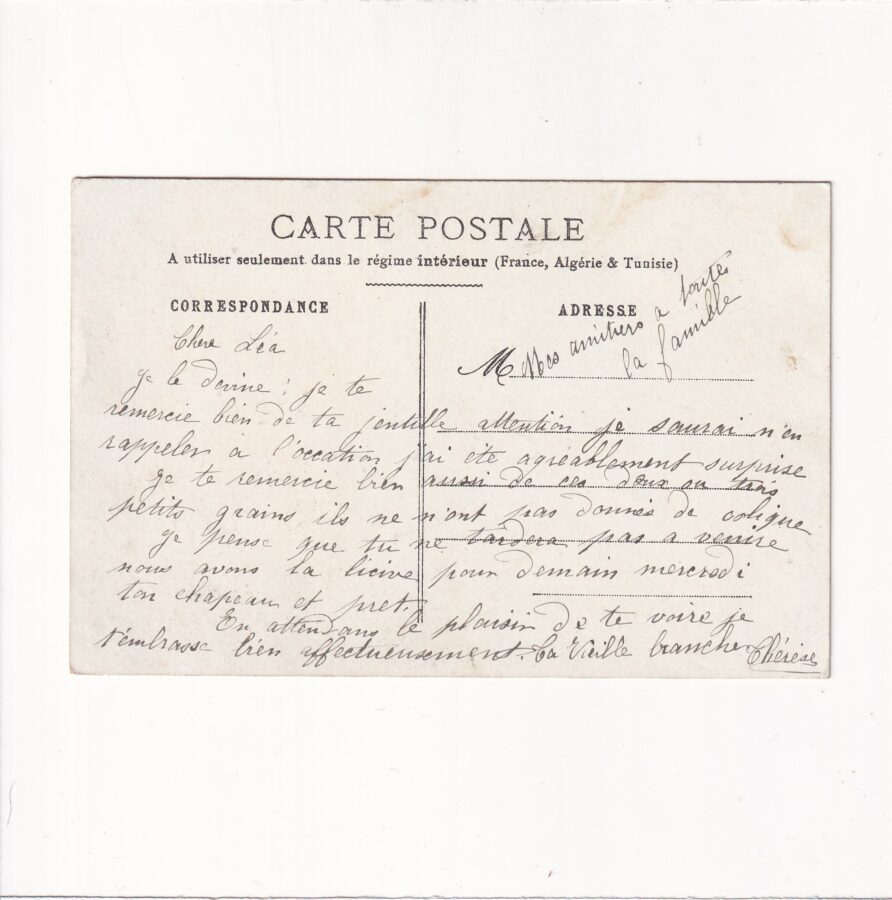 CARTE POSTALE
A utiliser seulement dans le régime intérieur (France, Algérie & Tunisie)
CORRESPONDANCE
ADRESSE
M
Mes amitiers a toutes
la famille
Chere Léa
je le devine ; je te
remercie bien de ta jentille attention je saurai n'en
rappeler à l'occation j'ai été agréablement surprise
je te remercie bien aussi de ces deux ou trois
petits grains ils ne n'ont pas donnés de colique
je pense que tu ne tardera pas a venire
nous avons la licive pour demain mercredi
ton chapeau et pret.
En attendans le plaisir de te voire je
t'embrasse bien affectueusement. ta Vieille branche Thérèse